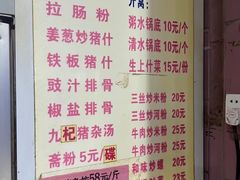 拉肠粉
姜葱炒猪什
铁板猪什
豉汁排骨
椒盐排骨
九杞猪杂汤
斋粉5元/碟
58元/斤
粥水锅底10元/个
清水锅底10元/个
生上什菜15元/份
三丝炒米粉20元
三丝炒河粉20元
牛肉炒米粉25元
牛肉炒河粉25元
和味炒螺20元